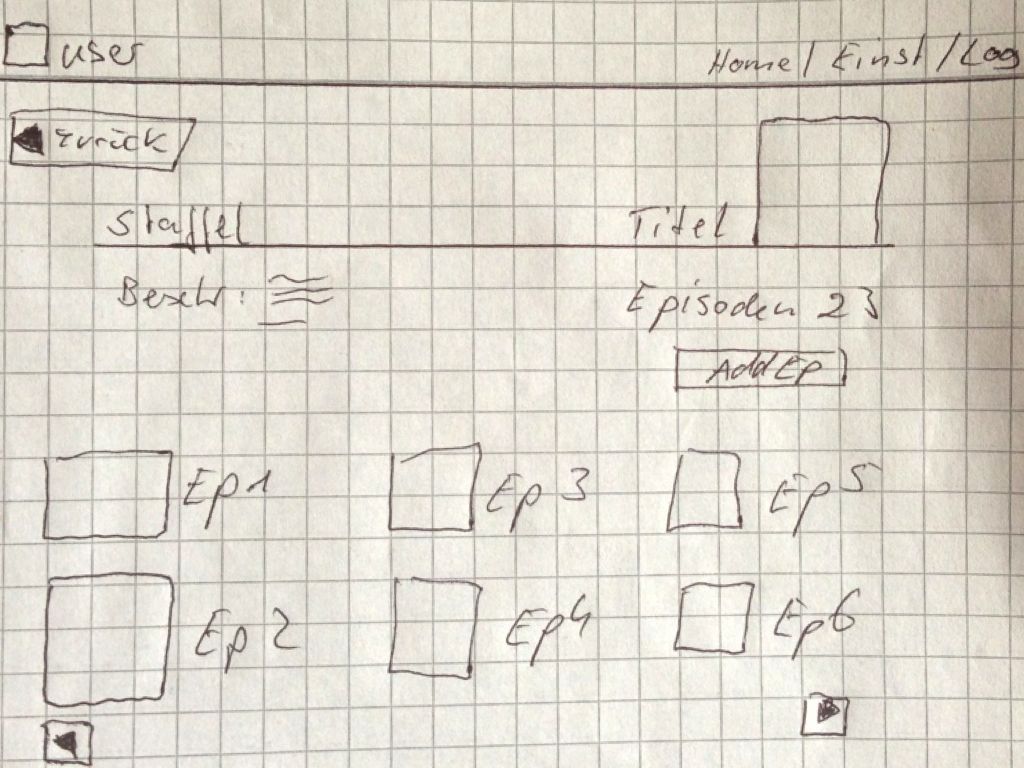 user Home / Einst / Log
zurück
Staffel Titel
Beschr: Episoden 23
Add Ep
Ep 1 Ep 3 Ep 5
Ep 2 Ep 4 Ep 6